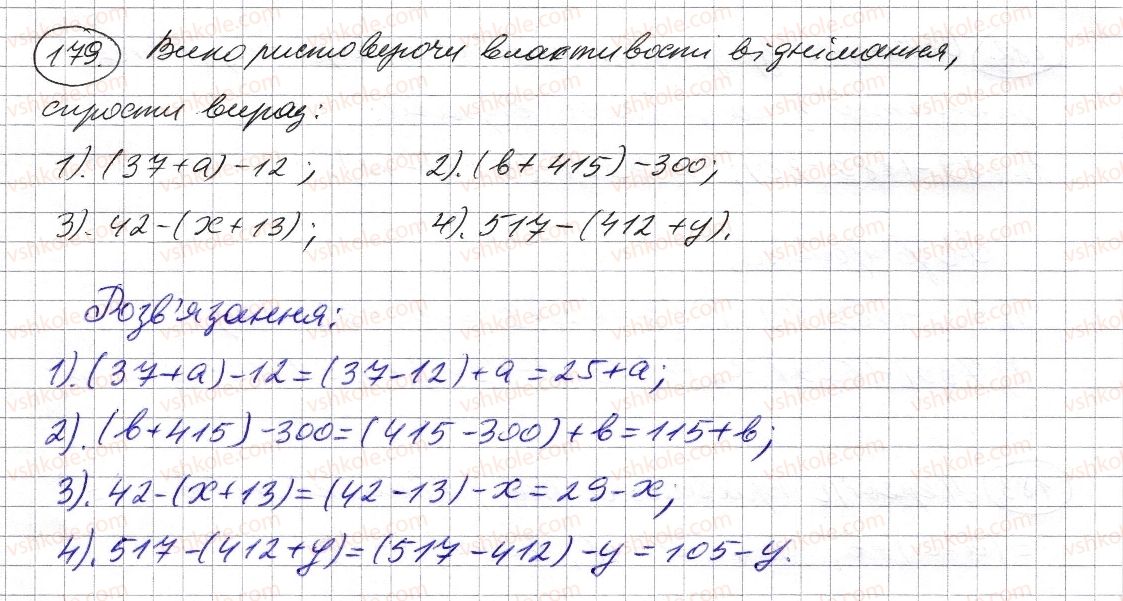 179. Використовуючи властивості віднімання,
спрости вираз:
1). (37+a)-12; 2). (b+415)-300;
3). 42-(x+13); 4). 517-(412+y).
Розв'язання:
1). (37+a)-12=(37-12)+a=25+a;
2). (b+415)-300=(415-300)+b=115+b;
3). 42-(x+13)=(42-13)-x=29-x;
4). 517-(412+y)=(517-412)-y=105-y.